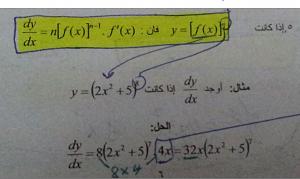 ٥ إذا كانت y = [f(x)]ⁿ فإن : dy/dx = n[f(x)]ⁿ⁻¹ . f'(x)
مثال: أوجد dy/dx إذا كانت y = (2x² + 5)⁸
الحل:
dy/dx = 8(2x² + 5)⁷ 4x = 32x(2x² + 5)⁷
8 × 4